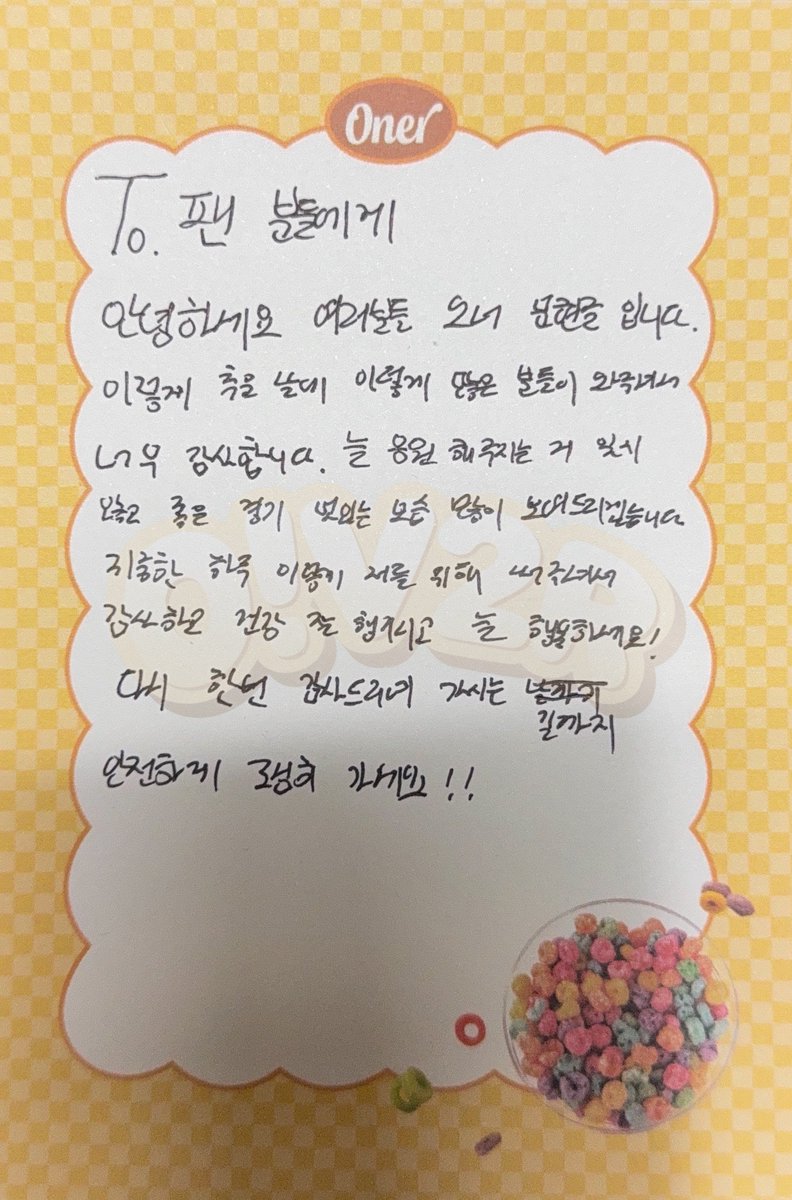 Oner
To. 팬 분들에게
안녕하세요 여러분들 오너 문현준 입니다.
이렇게 추운 날에 이렇게 많은 분들이 와주셔서
너무 감사합니다. 늘 응원 해주시는 거 잊지
않고 좋은 경기 멋있는 모습 많이 보여드리겠습니다
하루 이렇게 저를 위해 써주셔서
감사하고 건강 잘 챙기시고 늘 행복하세요!
다시 한번 감사드리며 가시는
길까지
안전하게 조심히 가세요!!